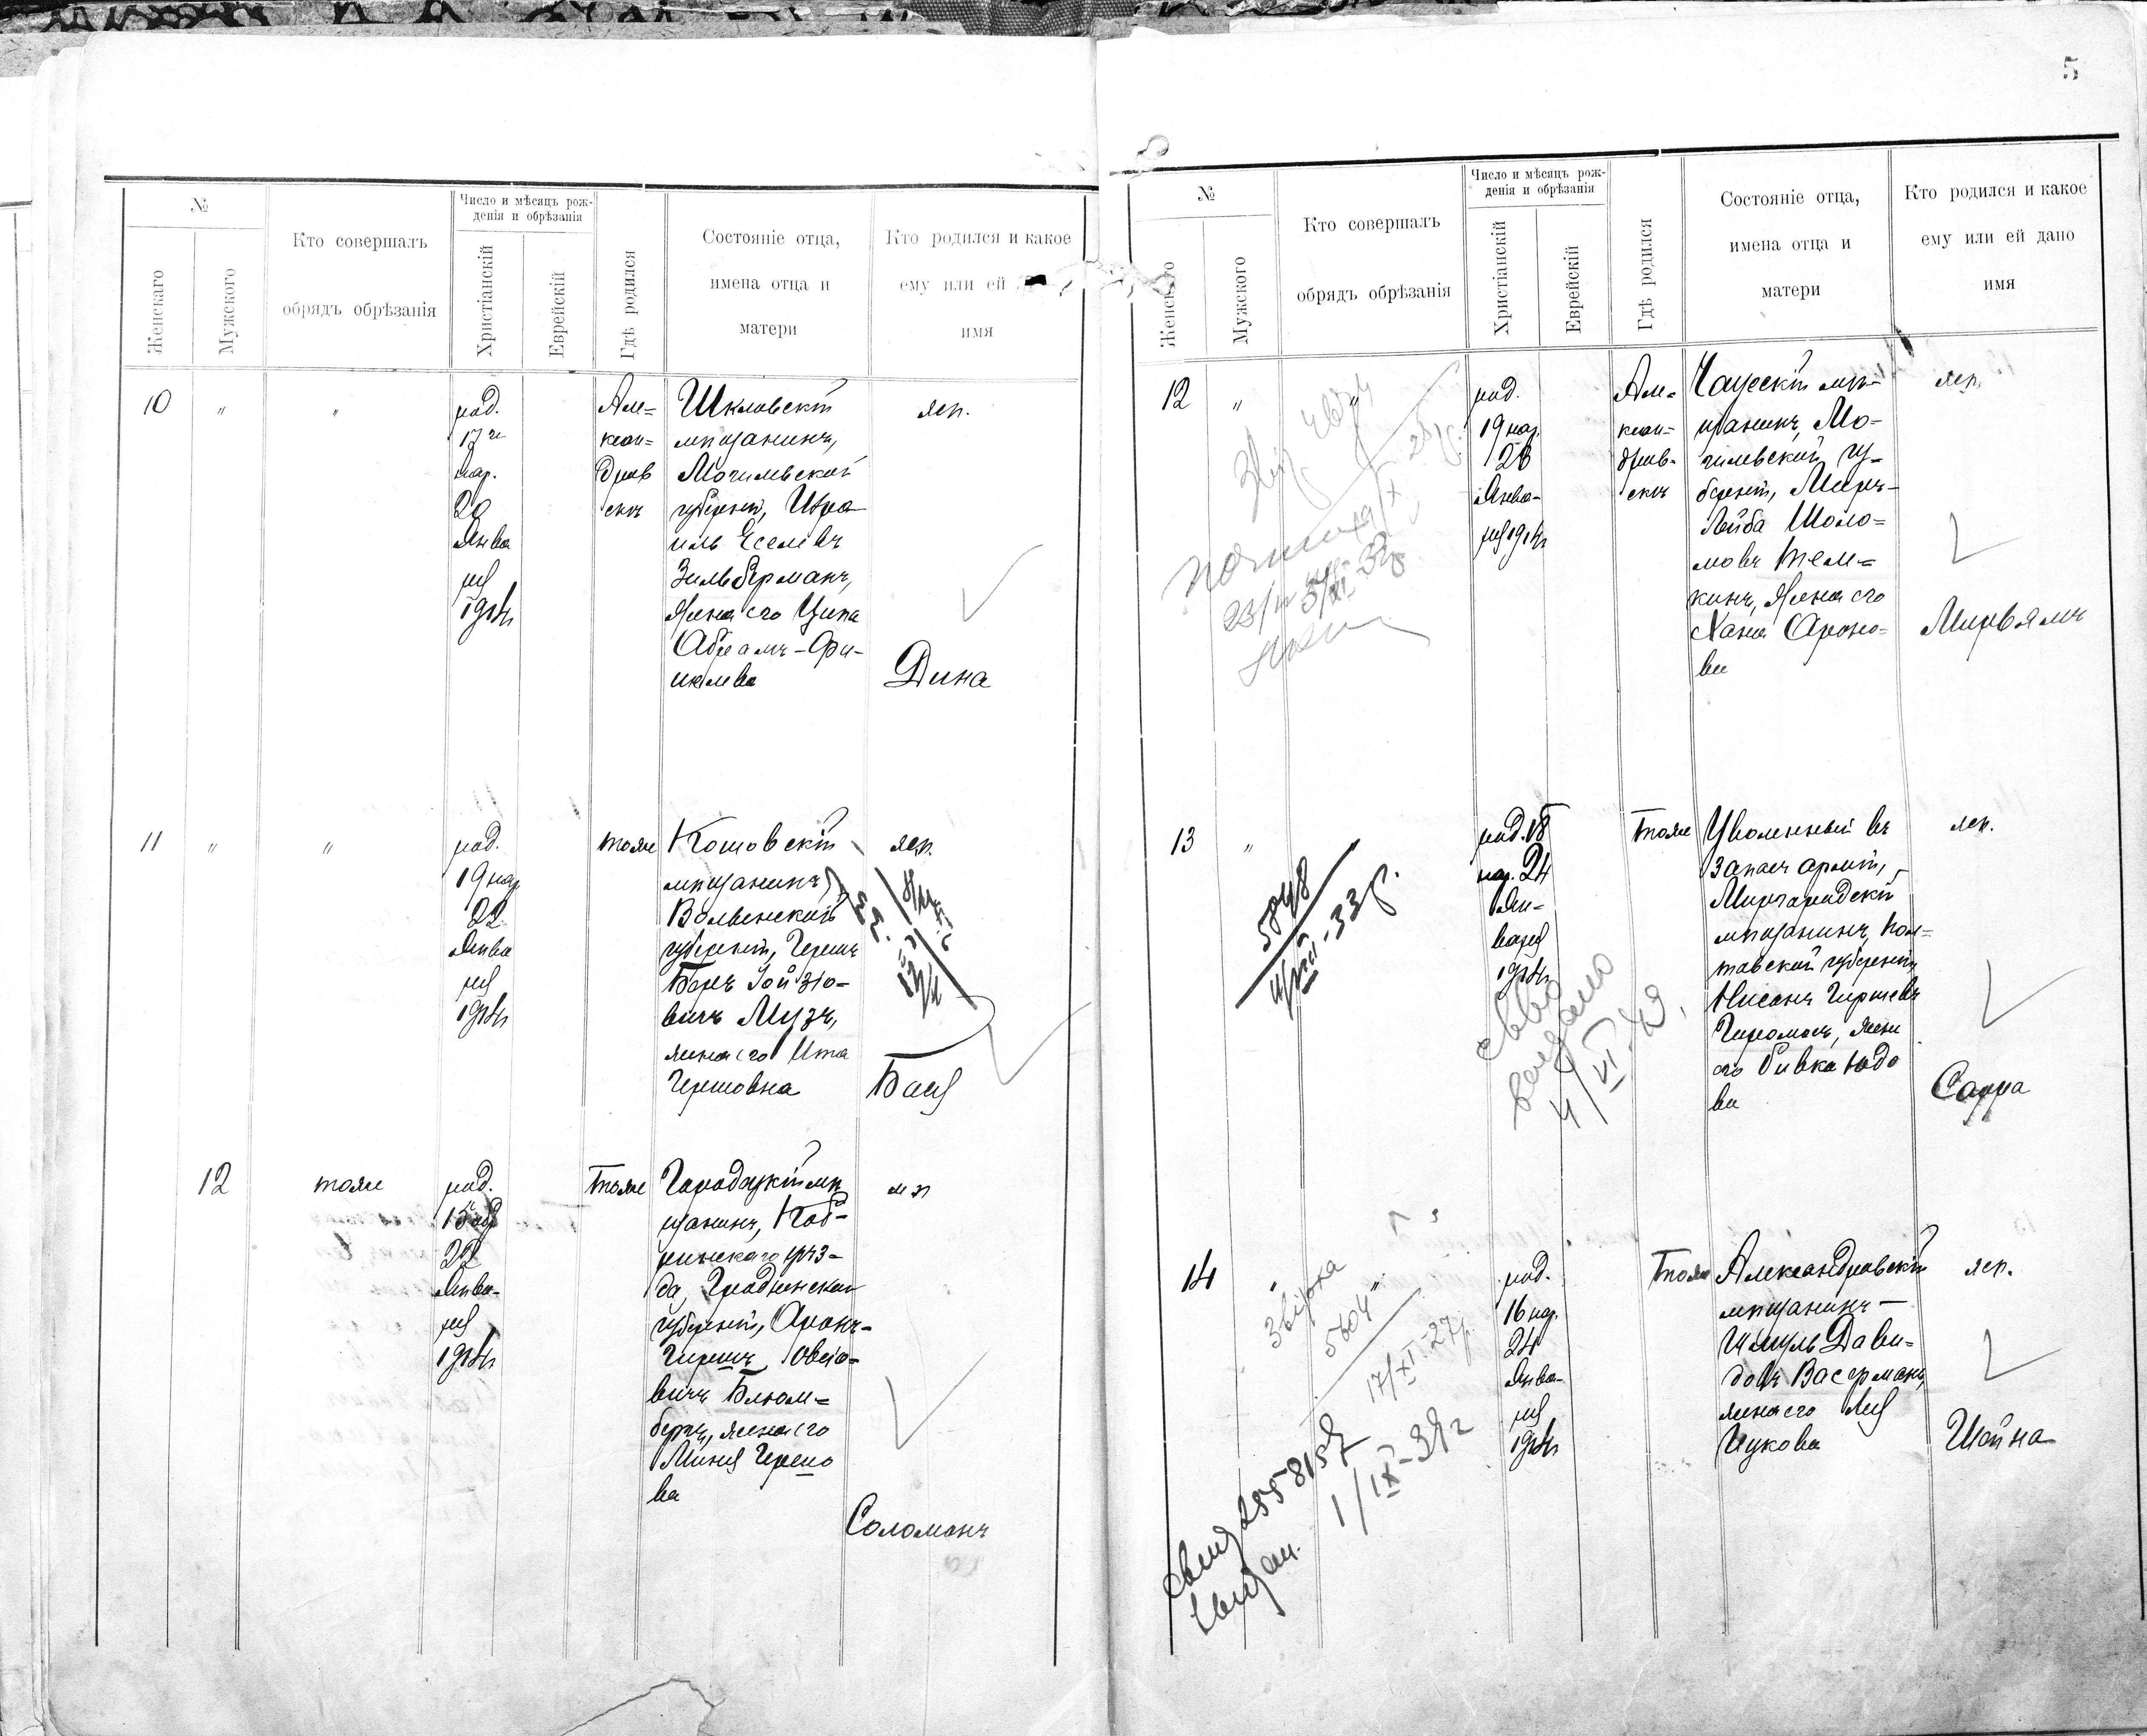 №
Женскаго
Мужского
Кто совершалъ
обрядъ обрѣзанія
Число и мѣсяцъ рож-
денія и обрѣзанія
Христіанскій
Еврейскій
Гдѣ родился
Состояніе отца,
имена отца и
матери
Кто родился и какое
ему или ей
имя
10
"
"
род.
17
нар.
20
Янва
ря
1914
Але=
ксан=
дров
скъ
Шкловскій
мѣщанинъ,
Могилевской
губерніи, Изра
иль Еселевъ
Зильберманъ,
жена его Ципа
Абрамъ-Фи-
жен.
Дина
11
"
"
род.
19 нар
22
Янва
ря
1914
тоже
мѣщанинъ,
Волынской
губерніи, Гершъ
Беръ
вичъ Музъ,
жена его Ита
Гершовна
жен.
Бася
12
тоже
род.
15 обр
22
Янва-
ря
1914
тоже
Городецкій мѣ
щанинъ, Коб-
ринскаго уѣз-
да, Гродненской
губерніи, Аронъ-
Гиршъ
вичъ Блюм=
бергъ, жена его
Миня Гершо
ва
м п
Соломонъ
5
№
Женскаго
Мужского
Кто совершалъ
обрядъ обрѣзанія
Число и мѣсяцъ рож-
денія и обрѣзанія
Христіанскій
Еврейскій
Гдѣ родился
Состояніе отца,
имена отца и
матери
Кто родился и какое
ему или ей дано
имя
12
"
"
род.
19 нар.
26
Янва-
ря 1914
Але=
ксан=
дров-
скъ
Чаусскій мѣ-
щанинъ, Мо-
гилевской гу-
берніи, Меръ-
Лейба Шоло=
мовъ Тем=
кинъ, жена его
Хана Ароно=
ва
жен.
Миръямъ
13
"
5848
-33 р.
род. 18
нар. 24
Ян-
варя
1914
выдано
тоже
Уволенный въ
запасъ арміи,
Миргородскій
мѣщанинъ, Пол=
тавской губерніи
Нисонъ Гиршевъ
жена
его Ривка Юдо
ва
жен.
Сарра
14
"
"
5604
17/XI-27р.
2558157
1/IX-39 г
род.
16 нар.
24
Янва-
ря
1914
тоже
Александровскій
мѣщанинъ-
Шмуль Дави=
довъ Васерманъ,
жена его Лея
Ицкова
жен.
Шейна